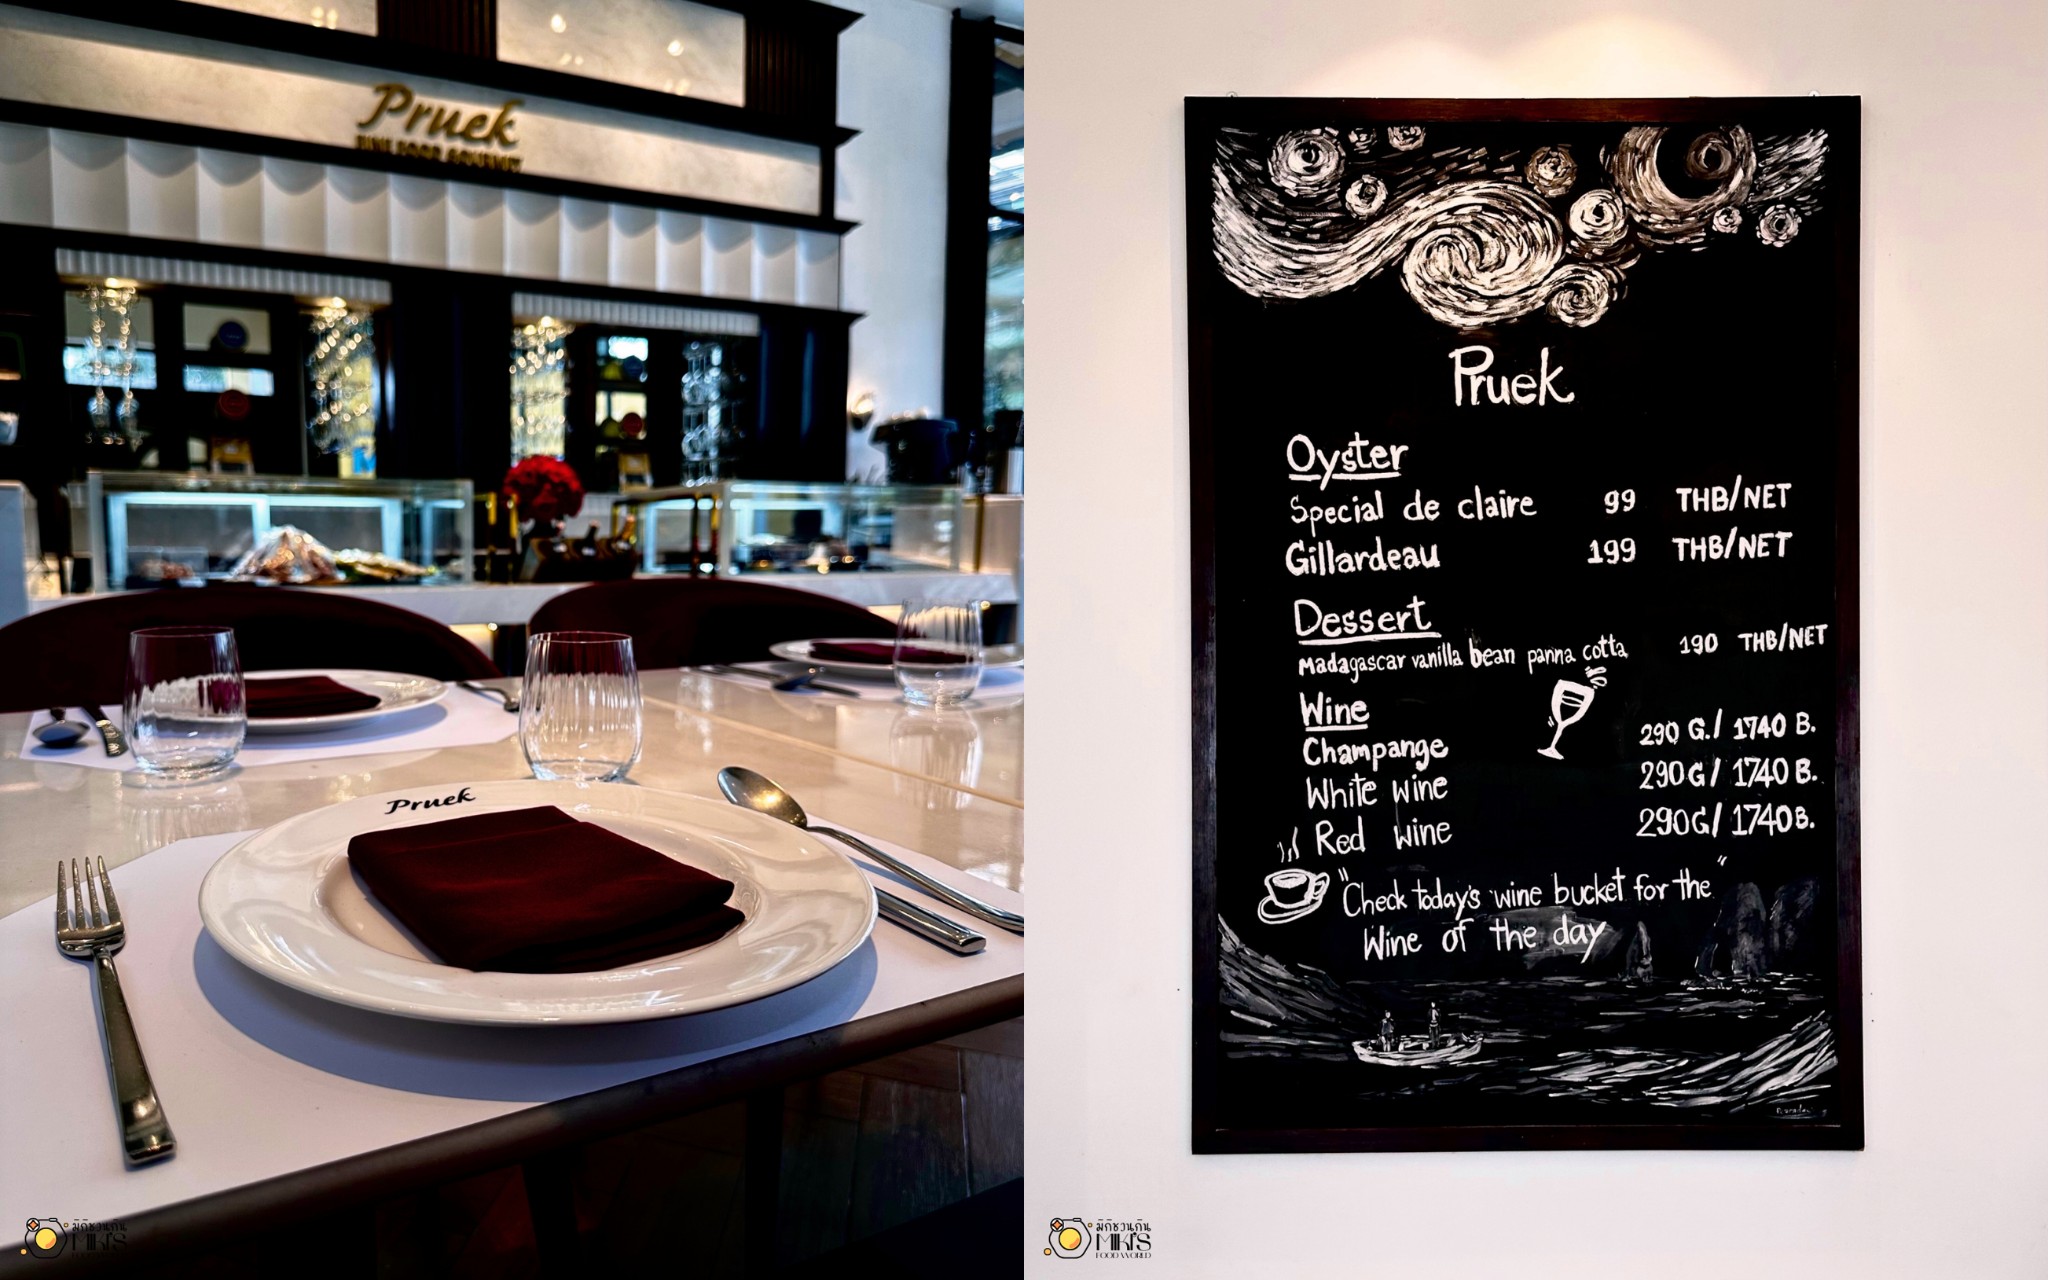 Pruek
FINE FOOD GOURMET
Pruek
มิกิชวนกิน
MIKI'S
FOOD WORLD
Pruek
Oyster
Special de claire 99 THB/NET
Gillardeau 199 THB/NET
Dessert
Madagascar vanilla bean panna cotta 190 THB/NET
Wine
Champange 290 G./ 1740 B.
White wine 290G/ 1740 B.
Red wine 290G/ 1740B.
"Check today's wine bucket for the"
Wine of the day
มิกิชวนกิน
MIKI'S
FOOD WORLD